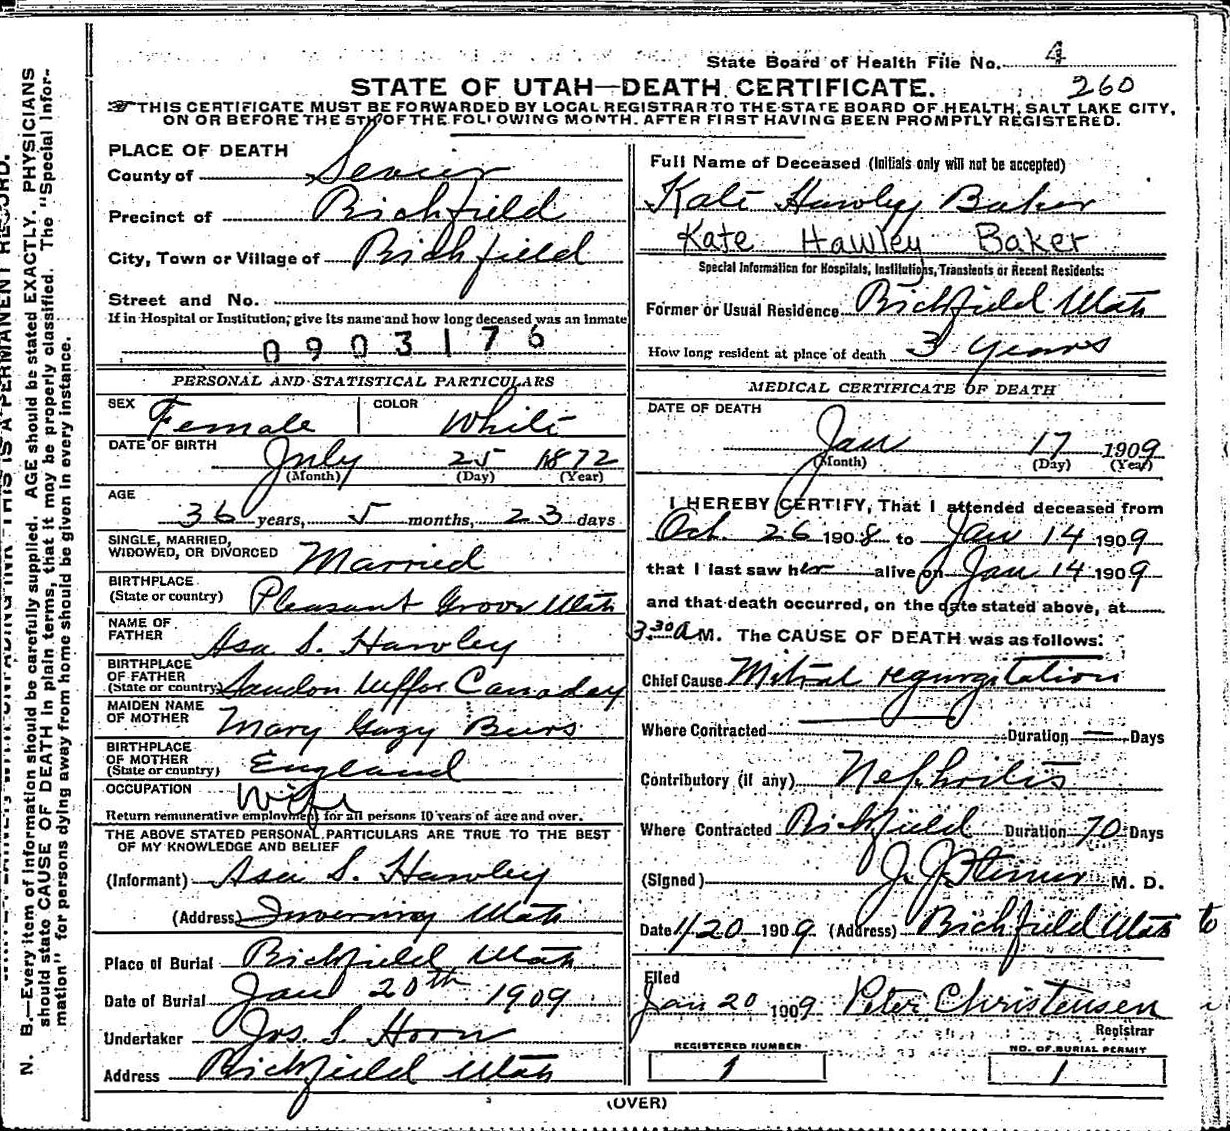 State Board of Health File No. 4
260
STATE OF UTAH—DEATH CERTIFICATE.
THIS CERTIFICATE MUST BE FORWARDED BY LOCAL REGISTRAR TO THE STATE BOARD OF HEALTH, SALT LAKE CITY,
ON OR BEFORE THE 5TH OF THE FOLLOWING MONTH. AFTER FIRST HAVING BEEN PROMPTLY REGISTERED.
PLACE OF DEATH
County of Sevier
Precinct of Richfield
City, Town or Village of Richfield
Street and No.
If in Hospital or Institution, give its name and how long deceased was an inmate
0903176
PERSONAL AND STATISTICAL PARTICULARS
SEX Female COLOR White
DATE OF BIRTH July 25 1872
(Month) (Day) (Year)
AGE
36 years, 5 months, 23 days
SINGLE, MARRIED,
WIDOWED, OR DIVORCED Married
BIRTHPLACE
(State or country) Pleasant Grove Utah
NAME OF
FATHER Asa S. Hawley
BIRTHPLACE
OF FATHER
(State or country) Canaday
MAIDEN NAME
OF MOTHER Mary
BIRTHPLACE
OF MOTHER
(State or country) England
OCCUPATION Wife
Return remunerative employment for all persons 10 years of age and over.
THE ABOVE STATED PERSONAL PARTICULARS ARE TRUE TO THE BEST
OF MY KNOWLEDGE AND BELIEF
(Informant) Asa S. Hawley
(Address) Utah
Place of Burial Richfield Utah
Date of Burial Jan 20th 1909
Undertaker Jos. S. Horn
Address Richfield Utah
Full Name of Deceased (Initials only will not be accepted)
Kate Hawley Baker
Kate Hawley Baker
Special Information for Hospitals, Institutions, Transients or Recent Residents:
Former or Usual Residence Richfield Utah
How long resident at place of death 3 years
MEDICAL CERTIFICATE OF DEATH
DATE OF DEATH
Jan 17 1909
(Month) (Day) (Year)
I HEREBY CERTIFY, That I attended deceased from
Oct. 26 1908 to Jan 14 1909
that I last saw her alive on Jan 14 1909
and that death occurred, on the date stated above, at
3:30 A M. The CAUSE OF DEATH was as follows:
Chief Cause Mitral regurgitation
Where Contracted Duration — Days
Contributory (if any) Nephritis
Where Contracted Richfield Duration 70 Days
(Signed) J. J. Steiner M. D.
Date 1/20 1909 (Address) Richfield Utah
to
Filed
Jan 20 1909 Peter Christensen
Registrar
REGISTERED NUMBER
1
NO. OF BURIAL PERMIT
1
(OVER)
N. B.—Every item of information should be carefully supplied. AGE should be stated EXACTLY. PHYSICIANS
should state CAUSE OF DEATH in plain terms, that it may be properly classified. The "Special Infor-
mation" for persons dying away from home should be given in every instance.
THIS IS A PERMANENT RECORD.